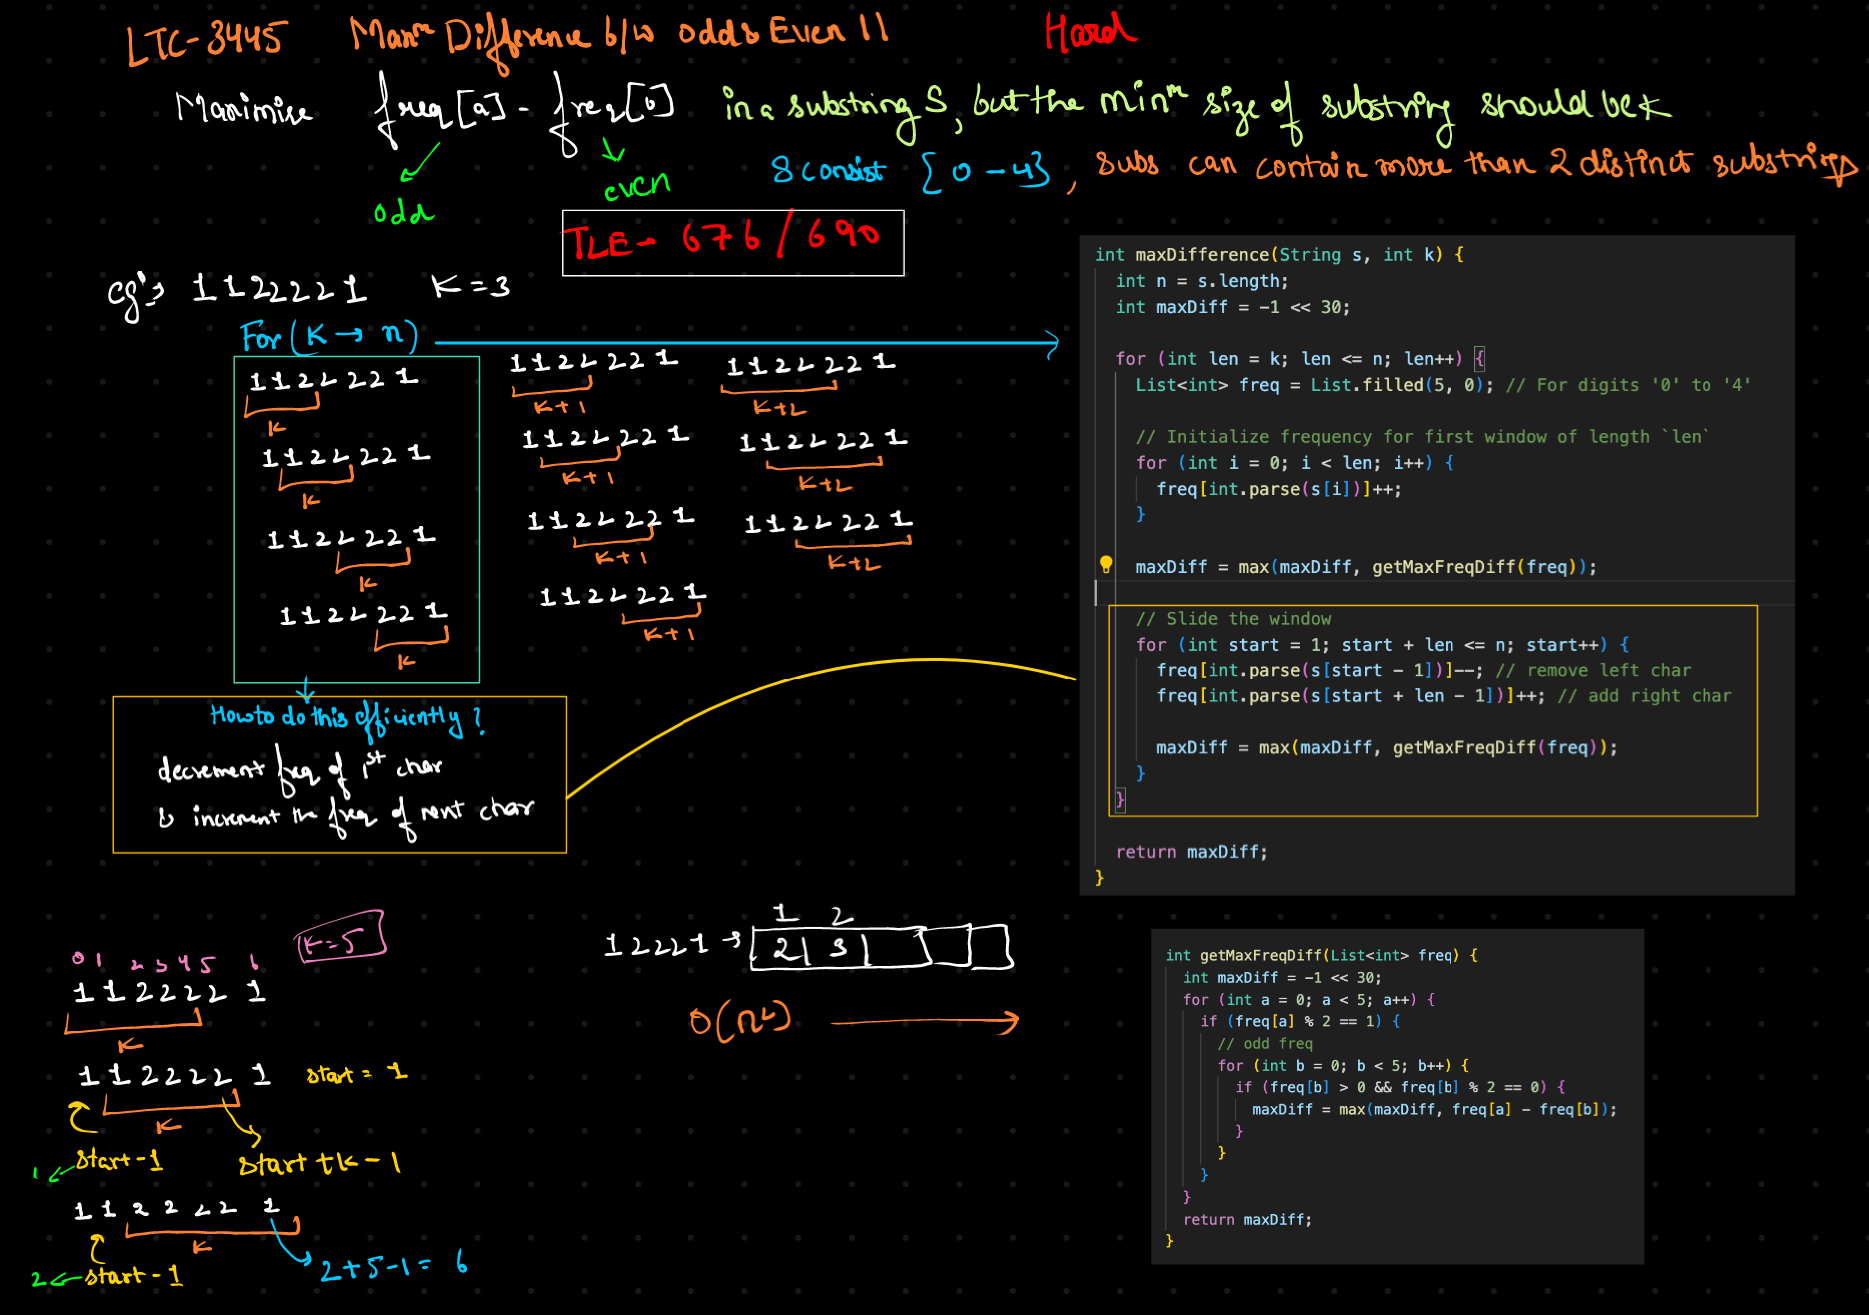 LTC-3445 Maxm Difference b/w odd & Even II Hard
Maximise freq[a] - freq[b] in a substring S, but the minm size of substring should be k
odd
even
S consist {0-4}, subs can contain more than 2 distinct substrings
TLE - 676/690
eg: 1122221 K=3
For (K → n)
1122221 1122221 1122221
K K+1 K+2
1122221 1122221 1122221
K K+1 K+2
1122221 1122221 1122221
K K+1 K+2
1122221 1122221
K K+1
How to do this efficiently?
decrement freq of 1st char
& increment the freq of next char
int maxDifference(String s, int k) {
int n = s.length;
int maxDiff = -1 << 30;
for (int len = k; len <= n; len++) {
List<int> freq = List.filled(5, 0); // For digits '0' to '4'
// Initialize frequency for first window of length `len`
for (int i = 0; i < len; i++) {
freq[int.parse(s[i])]++;
}
maxDiff = max(maxDiff, getMaxFreqDiff(freq));
// Slide the window
for (int start = 1; start + len <= n; start++) {
freq[int.parse(s[start - 1])]--; // remove left char
freq[int.parse(s[start + len - 1])]++; // add right char
maxDiff = max(maxDiff, getMaxFreqDiff(freq));
}
}
return maxDiff;
}
K=5
0 1 2 3 4 5 6
1 1 2 2 2 2 1
K
1 1 2 2 2 2 1 start = 1
K
1 ← start-1 start+k-1
1 1 2 2 2 2 1
K
2 ← start-1 2+5-1= 6
1 2
12221 → 2 3
O(n²) →
int getMaxFreqDiff(List<int> freq) {
int maxDiff = -1 << 30;
for (int a = 0; a < 5; a++) {
if (freq[a] % 2 == 1) {
// odd freq
for (int b = 0; b < 5; b++) {
if (freq[b] > 0 && freq[b] % 2 == 0) {
maxDiff = max(maxDiff, freq[a] - freq[b]);
}
}
}
}
return maxDiff;
}